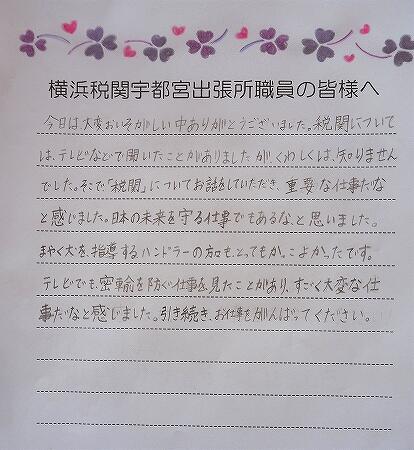 横浜税関宇都宮出張所職員の皆様へ
今日は、大変おいそがしい中ありがとうございました。税関について
は、テレビなどで聞いたことがありましたが、くわしくは、知りません
でした。そこで「税関」についてお話をしていただき、重要な仕事だな
と感じました。日本の未来を守る仕事でもあるな、と思いました。
まやく犬を、指導するハンドラーの方も、とってもかっこよかったです。
テレビでも、密輸を防ぐ仕事を、見たことがあり、すごく大変な仕
事だなと感じました。引き続き、お仕事をがんばってください。